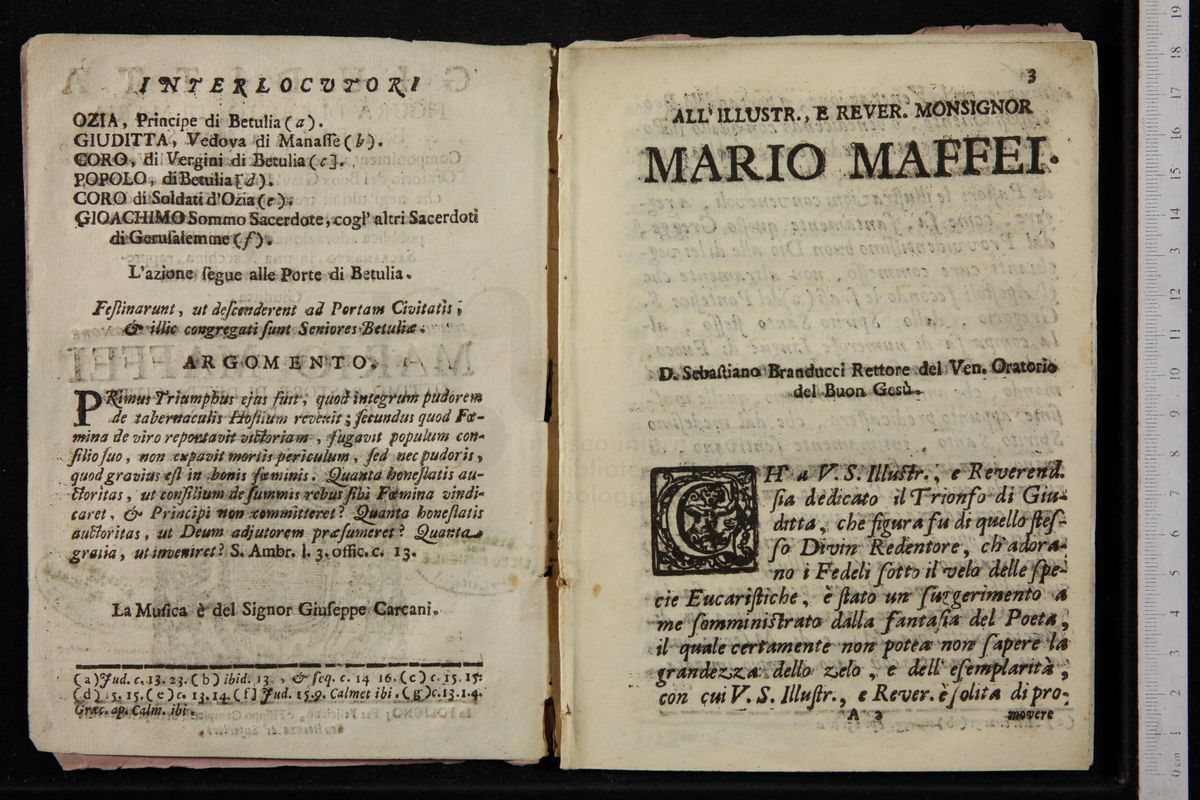 INTERLOCVTORI
OZIA, Principe di Betulia (a).
GIUDITTA, Vedova di Manaſſe (b).
CORO, di Vergini di Betulia (c].
POPOLO, di Betulia [d).
CORO di Soldati d'Ozia (e).
GIOACHIMO Sommo Sacerdote, cogl' altri Sacerdoti
di Geruſalemme (f).
L'azione ſegue alle Porte di Betulia.
Feſtinarunt, ut deſcenderent ad Portam Civitatis,
& illic congregati ſunt Seniores Betuliæ.
ARGOMENTO.
PRimus Triumphus ejus fuit, quod integrum pudorem
de tabernaculis Hoſtium revexit; ſecundus quod Fœ-
mina de viro reportavit victoriam, fugavit populum con-
ſilio ſuo, non expavit mortis periculum, ſed nec pudoris,
quod gravius eſt in bonis fæminis. Quanta honeſtatis au-
ctoritas, ut conſilium de ſummis rebus ſibi Fœmina vindi-
caret, & Principi non committeret? Quanta honeſtatis
auctoritas, ut Deum adjutorem præſumeret? Quanta
gratia, ut inveniret? S. Ambr. l. 3. Offic. c. 13.
La Muſica è del Signor Giuſeppe Carcani.
(a) Jud. c. 13. 23. (b) ibid. 13., & ſeq. c. 14 16. (c) c. 15. 15.
(d) 15. 15. (e) c. 13. 14. (f] Jud. 15. 9. Calmet ibi. (g) c. 13. 1. 4.
Græc. ap. Calm. ibi.
3
ALL'ILLUSTR., E REVER. MONSIGNOR
MARIO MAFFEI.
D. Sebaſtiano Branducci Rettore del Ven. Oratorio
del Buon Gesù.
CH' a V. S. Illuſtr., e Reverend.
ſia dedicato il Trionfo di Giu-
ditta, che figura fu di quello ſteſ-
ſo Divin Redentore, ch'adora-
no i Fedeli ſotto il velo delle ſpe-
cie Eucariſtiche, è ſtato un ſuggerimento a
me ſomminiſtrato dalla fantaſia del Poeta,
il quale certamente non potea non ſapere la
grandezza dello zelo, e dell' eſemplarità,
con cui V. S. Illuſtr., e Rever. è ſolita di pro-
A 2 movere
0 cm 1 2 3 4 5 6 7 8 9 10 11 12 13 14 15 16 17 18 19